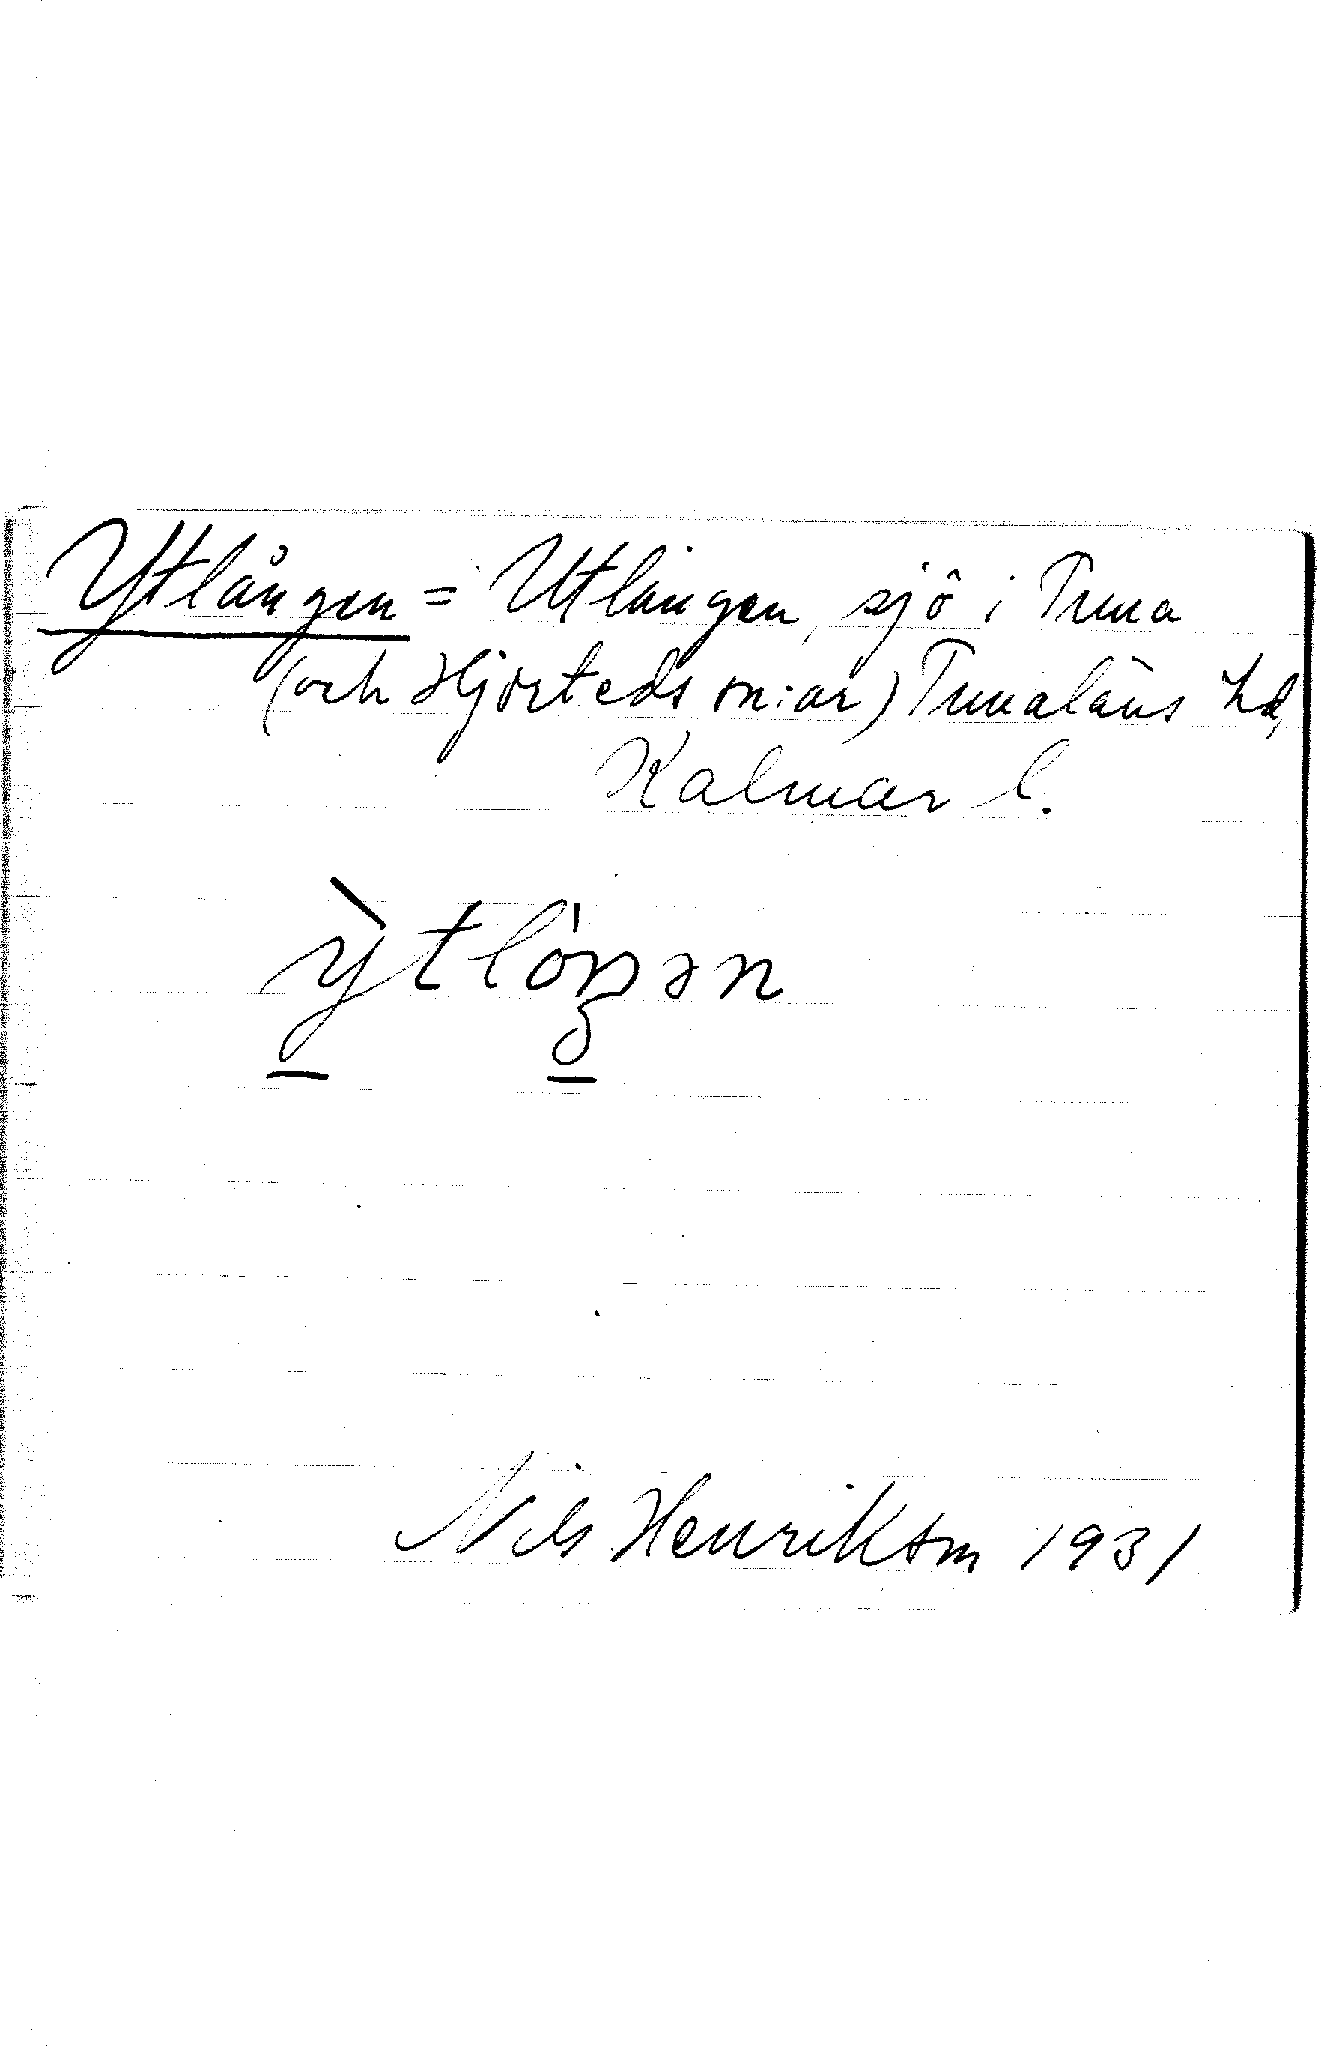 Ytlången = Utlången, sjö i Tuna
(och Hjorteds sn:ar) Tunaläns hd,
Kalmar l.
ỳtlóŋən
Nils Henrikson 1931